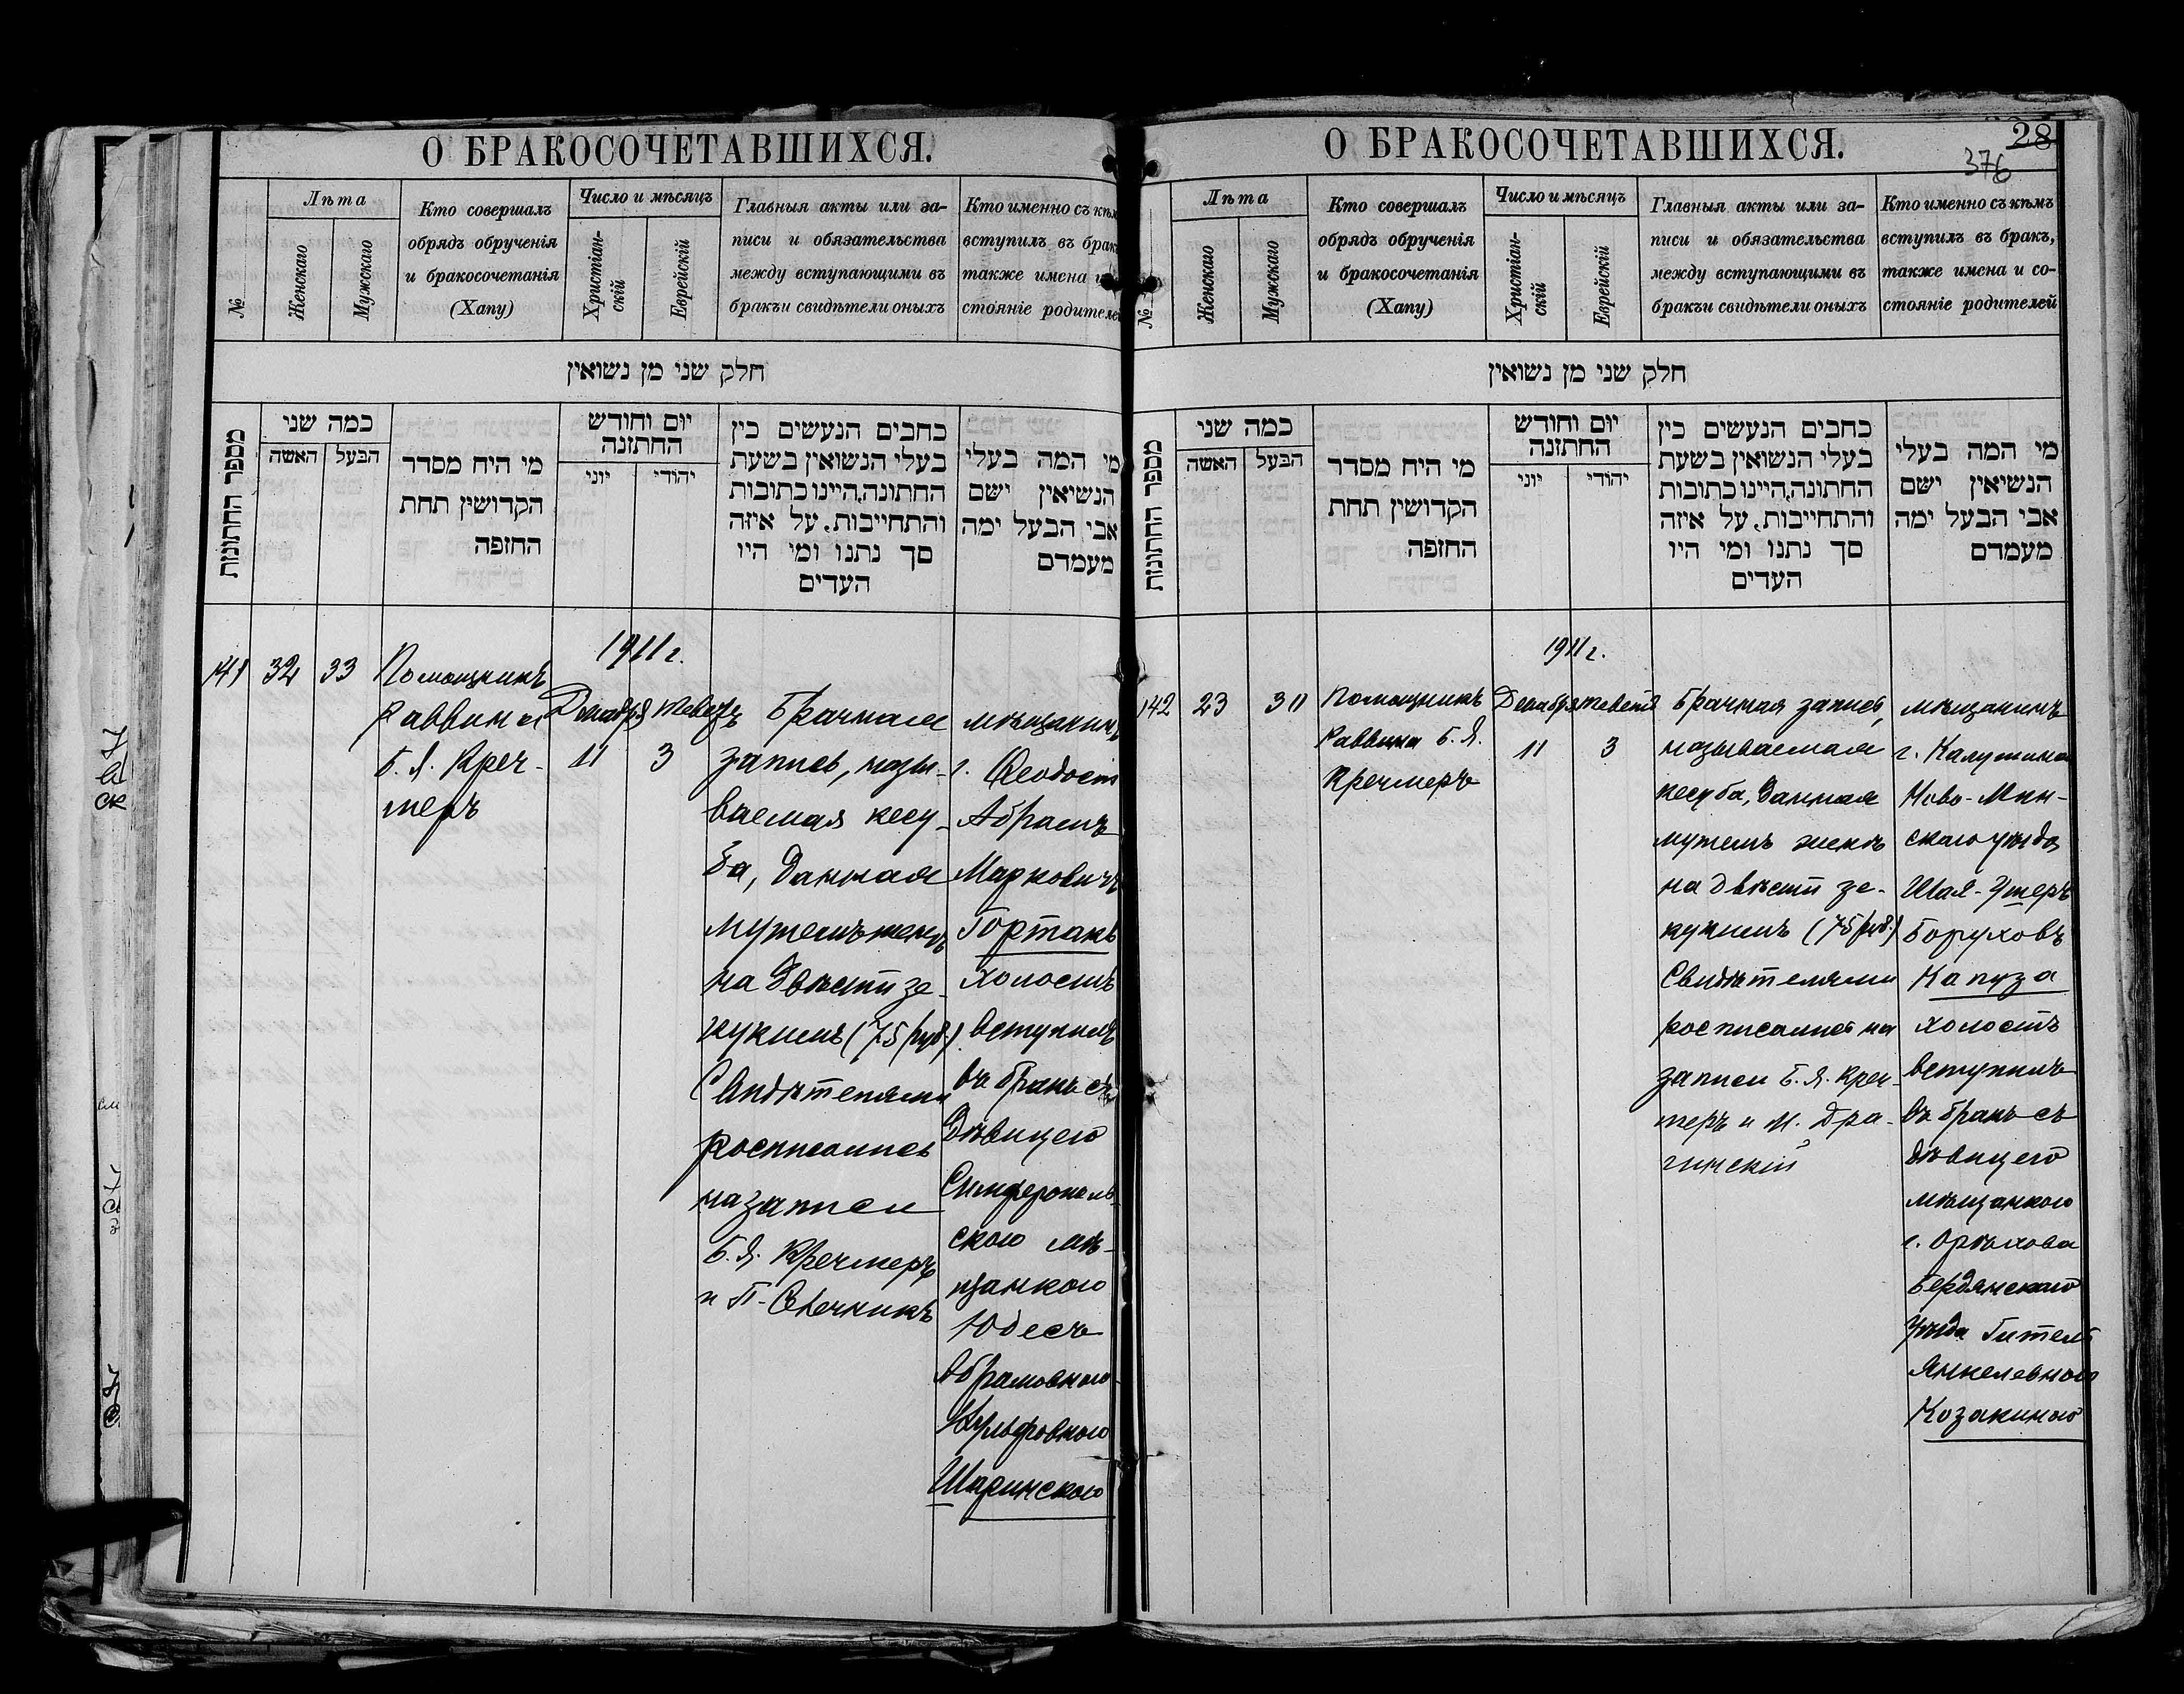 О БРАКОСОЧЕТАВШИХСЯ.
№
Лѣта
Женскаго
Мужскаго
Кто совершалъ
обрядъ обрученія
и бракосочетанія
(Хапу)
Число и мѣсяцъ
Христіан-
скій
Еврейскій
Главныя акты или за-
писи и обязательства
между вступающими въ
бракъ и свидѣтели оныхъ
Кто именно съ кѣмъ
вступилъ въ бракъ
также имена и
стояніе родителей
חלק שני מן נשואין
מספר החתונות
כמה שני
האשה
הבעל
מי היח מסדר
הקדושין תחת
החופה
יום וחודש
החתונה
יוני
יהודי
כחבים הנעשים בין
בעלי הנשואין בשעת
החתונה, היינו כתובות
והתחייבות, על איזה
סך נתנו ומי היו
העדים
מי המה בעלי
הנשיאין ישם
אבי הבעל ימה
מעמדם
1911 г.
141
32
33
Помощникъ
Раввина
Б. Я. Креч-
меръ
Декабря
11
Теветъ
3
Брачная
запись, назы-
ваемая кесу-
ба, данная
мужемъ женѣ
на двѣсти зе-
кукимъ (75 руб.)
Свидѣтелями
росписались
на записи
Б. Я. Кречмеръ
и П. Свечникъ
мѣщанинъ
г. Ѳеодосіи
Абрамъ
Марковичъ
Гортанъ
холостъ
вступилъ
въ бракъ съ
дѣвицею
Симферополь
скою мѣ-
щанкою
Юдесъ
Абрамовною
Вульфовною
Шаринскою
О БРАКОСОЧЕТАВШИХСЯ.
28
376
№
Лѣта
Женскаго
Мужскаго
Кто совершалъ
обрядъ обрученія
и бракосочетанія
(Хапу)
Число и мѣсяцъ
Христіан-
скій
Еврейскій
Главныя акты или за-
писи и обязательства
между вступающими въ
бракъ и свидѣтели оныхъ
Кто именно съ кѣмъ
вступилъ въ бракъ,
также имена и со-
стояніе родителей
חלק שני מן נשואין
מספר החתונות
כמה שני
האשה
הבעל
מי היח מסדר
הקדושין תחת
החופה
יום וחודש
החתונה
יוני
יהודי
כחבים הנעשים בין
בעלי הנשואין בשעת
החתונה, היינו כתובות
והתחייבות, על איזה
סך נתנו ומי היו
העדים
מי המה בעלי
הנשיאין ישם
אבי הבעל ימה
מעמדם
1911 г.
142
23
30
Помощникъ
Раввина Б. Я.
Кречмеръ
Декабря
11
Тевета
3
Брачная запись,
называемая
кесуба, данная
мужемъ женѣ
на двѣсти зе-
кукимъ (75 руб.)
Свидѣтелями
росписались на
записи Б. Я. Креч-
меръ и М. Дра-
гинскій
мѣщанинъ
г. Калушина
Ново-Мин-
скаго уѣзда
Шая-Умеръ
Боруховъ
Капуза
холостъ
вступилъ
въ бракъ съ
дѣвицею
мѣщанкою
г. Орѣхова
Бердянскаго
уѣзда Гитель
Янкелевною
Козакиною